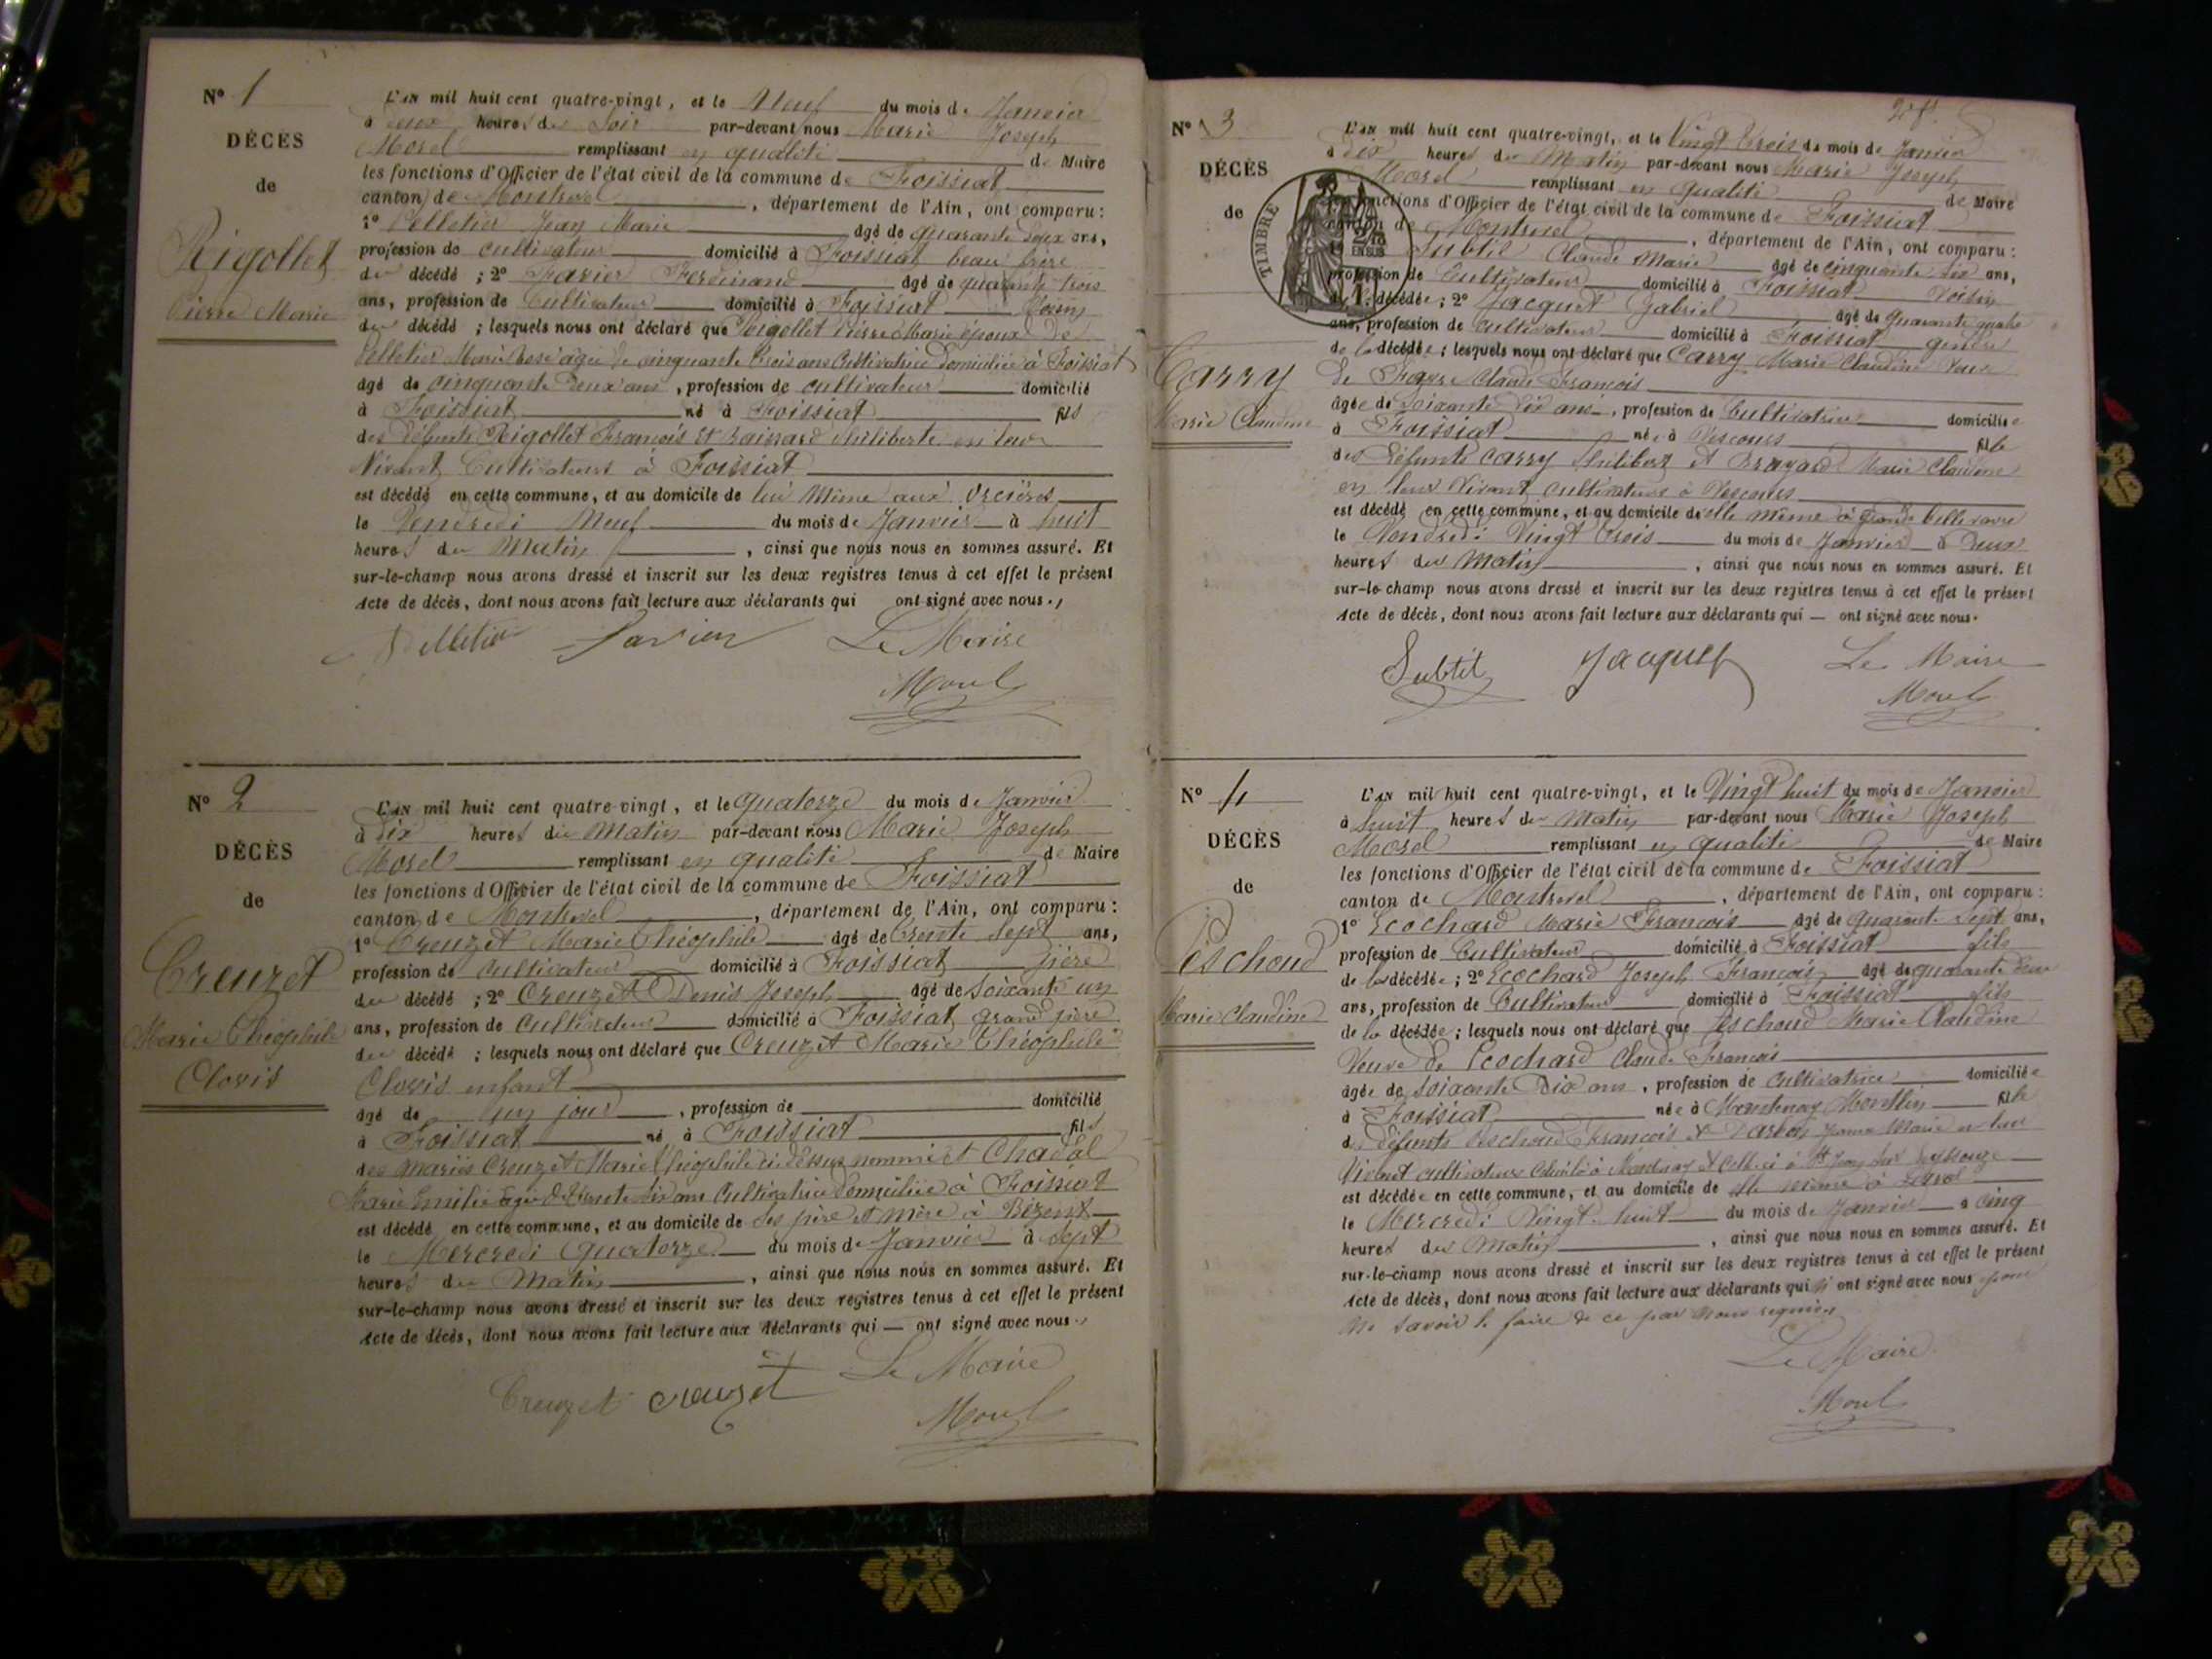 N° 1
DÉCÈS
de
Rigollet
Pierre Marie
L'AN mil huit cent quatre-vingt, et le Neuf du mois de Janvier
à heures du Soir par-devant nous Marie Joseph
Morel remplissant en qualité de Maire
les fonctions d'Officier de l'état civil de la commune de Foissiat
canton de Montrevel, département de l'Ain, ont comparu :
1° Pelletier Jean Marie âgé de quarante deux ans,
profession de cultivateur domicilié à Foissiat beau frère
du décédé ; 2° Favier Ferdinand âgé de quarante trois
ans, profession de Cultivateur domicilié à Foissiat Voisin
du décédé ; lesquels nous ont déclaré que Rigollet Pierre Marie époux de
Pelletier Marie Josè âgée de cinquante trois ans Cultivatrice domiciliée à Foissiat
âgé de cinquante deux ans, profession de cultivateur domicilié
à Foissiat né à Foissiat fils
des défunts Rigollet François et Philiberte en leur
Vivant Cultivateurs à Foissiat
est décédé en cette commune, et au domicile de lui même aux Orcières
le Vendredi Neuf du mois de Janvier à huit
heures du Matin, ainsi que nous nous en sommes assuré. Et
sur-le-champ nous avons dressé et inscrit sur les deux registres tenus à cet effet le présent
Acte de décès, dont nous avons fait lecture aux déclarants qui ont signé avec nous.
Pelletier Favier Le Maire
Morel
N° 2
DÉCÈS
de
Creuzet
Marie Théophile
Clovis
L'AN mil huit cent quatre-vingt, et le quatorze du mois de Janvier
à dix heures du Matin par-devant nous Marie Joseph
Morel remplissant en qualité de Maire
les fonctions d'Officier de l'état civil de la commune de Foissiat
canton de Montrevel, département de l'Ain, ont comparu :
1° Creuzet Marie Théophile âgé de trente sept ans,
profession de Cultivateur domicilié à Foissiat père
du décédé ; 2° Creuzet Denis Joseph âgé de Soixante un
ans, profession de Cultivateur domicilié à Foissiat grand père
du décédé ; lesquels nous ont déclaré que Creuzet Marie Théophile
Clovis enfant
âgé de un jour, profession de domicilié
à Foissiat né à Foissiat fils
des mariés Creuzet Marie Théophile ci dessus nommé et Chadal
Marie Emilie âgée de trente six ans Cultivatrice domiciliée à Foissiat
est décédé en cette commune, et au domicile de ses père et mère à Bézent
le Mercredi Quatorze du mois de Janvier à sept
heures du Matin, ainsi que nous nous en sommes assuré. Et
sur-le-champ nous avons dressé et inscrit sur les deux registres tenus à cet effet le présent
Acte de décès, dont nous avons fait lecture aux déclarants qui — ont signé avec nous.
Creuzet creuzet Le Maire
Morel
N° 3
DÉCÈS
de
Carry
Marie Claudine
TIMBRE
EN SUS
L'AN mil huit cent quatre-vingt, et le Vingt trois du mois de Janvier
à dix heures du Matin par-devant nous Marie Joseph
Morel remplissant en qualité de Maire
les fonctions d'Officier de l'état civil de la commune de Foissiat
canton de Montrevel, département de l'Ain, ont comparu :
1° Subtil Claude Marie âgé de cinquante six ans,
profession de Cultivateur domicilié à Foissiat Voisin
de la décédée ; 2° Jacquet Gabriel âgé de quarante quatre
ans, profession de cultivateur domicilié à Foissiat gendre
de la décédée ; lesquels nous ont déclaré que Carry Marie Claudine Veuve
de Favre Claude François
âgée de Soixante dix ans, profession de Cultivatrice domiciliée
à Foissiat née à Vescours fille
des défunts Carry Philibert et Brayard Marie Claudine
en leur Vivant cultivateurs à Vescours
est décédé en cette commune, et au domicile de elle même à Grande Bellevavre
le Vendredi Vingt trois du mois de Janvier à Deux
heures du Matin, ainsi que nous nous en sommes assuré. Et
sur-le-champ nous avons dressé et inscrit sur les deux registres tenus à cet effet le présent
Acte de décès, dont nous avons fait lecture aux déclarants qui — ont signé avec nous.
Subtil Jacquet Le Maire
Morel
N° 4
DÉCÈS
de
Péschoud
Marie Claudine
L'AN mil huit cent quatre-vingt, et le Vingt huit du mois de Janvier
à huit heures du Matin par-devant nous Marie Joseph
Morel remplissant en qualité de Maire
les fonctions d'Officier de l'état civil de la commune de Foissiat
canton de Montrevel, département de l'Ain, ont comparu :
1° Ecochard Marie François âgé de quarante sept ans,
profession de Cultivateur domicilié à Foissiat fils
de la décédée ; 2° Ecochard Joseph François âgé de quarante deux
ans, profession de Cultivateur domicilié à Foissiat fils
de la décédée ; lesquels nous ont déclaré que Peschoud Marie Claudine
Veuve de Ecochard Claude François
âgée de Soixante Dix ans, profession de Cultivatrice domiciliée
à Foissiat née à Mantenay Montlin fille
de défunts Peschoud François et Jeanne Marie en leur
Vivant cultivateurs Celui là à Mantenay et Celle ci à St Jean sur Reyssouze
est décédée en cette commune, et au domicile de elle même à
le Mercredi Vingt huit du mois de Janvier à cinq
heures du Matin, ainsi que nous nous en sommes assuré. Et
sur-le-champ nous avons dressé et inscrit sur les deux registres tenus à cet effet le présent
Acte de décès, dont nous avons fait lecture aux déclarants qui n'ont signé avec nous pour
ne savoir le faire de ce par nous requis
Le Maire
Morel